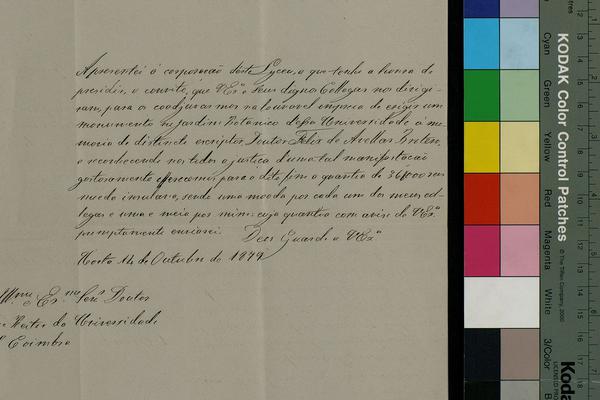 Apresentei á corporação deste Lyceu, a que tenho a honra de
presidir, o convite, que VExª e Seus dignos Collegas nos dirigi-
ram, para os coadjuvarmos na louvavel empresa de erigir um
monumento no Jardim Botanico dessa Universidade á me-
moria do distincto escriptor, Doutor Felix de Avellar Brotero,
e reconhecendo nos todos a justiça d'uma tal manifestação
gostosamente offerecemos para o dito fim a quantia de 36$000 reis
moeda insulana, sendo uma moeda por cada um dos meus col-
legas e uma e meia por mim: cuja quantia com aviso de VExª
promptamente enviarei. Deus Guarde a VExª
Horta 14 de Outubro de
Illmo e Exmo Senr Doutor
Reitor da Universidade
Coimbra
KODAK Color Control Patches
© The Tiffen Company, 2000
Kodak
LICENSED PRO
Cyan
Green
Yellow
Red
Magenta
White
3/Color